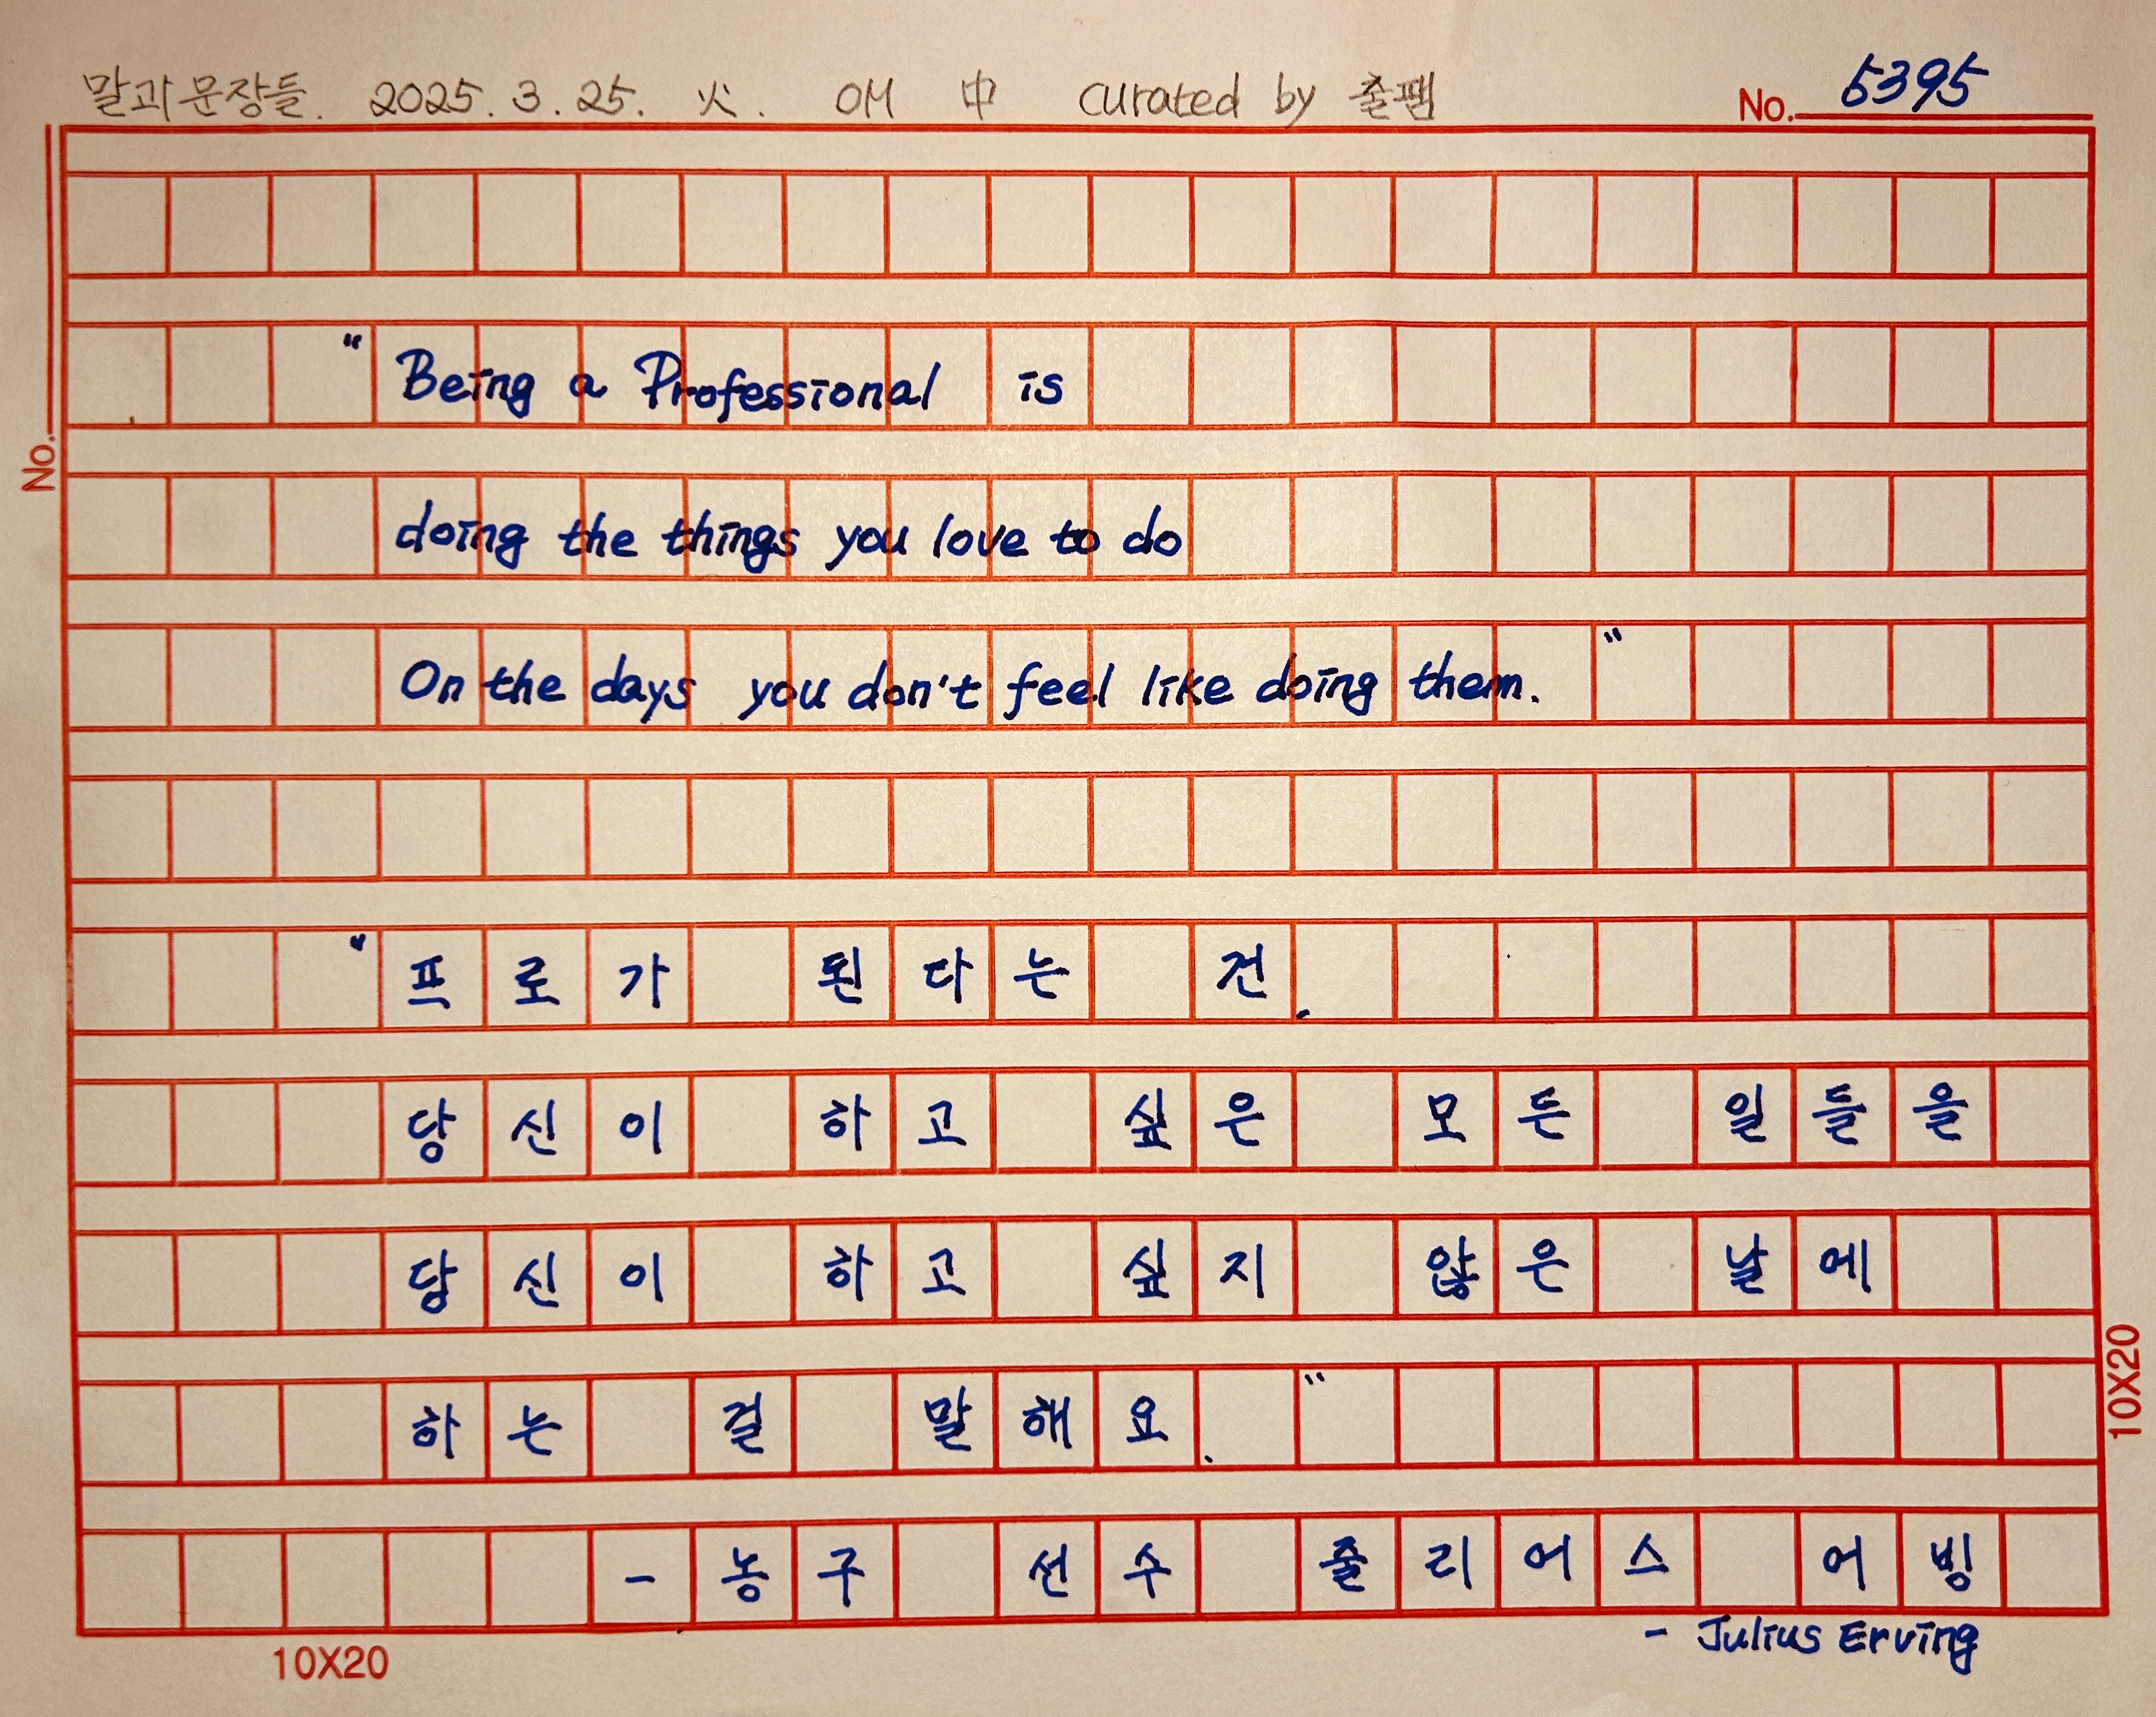 말과 문장들. 2025. 3. 25. 火. OM 中 curated by 줄팸 No. 5395
No.
"Being a Professional is
doing the things you love to do
On the days you don't feel like doing them."
"프로가 된다는 건,
당신이 하고 싶은 모든 일들을
당신이 하고 싶지 않은 날에
하는 걸 말해요."
- 농구 선수 줄리어스 어빙
- Julius Erving
10X20
10X20